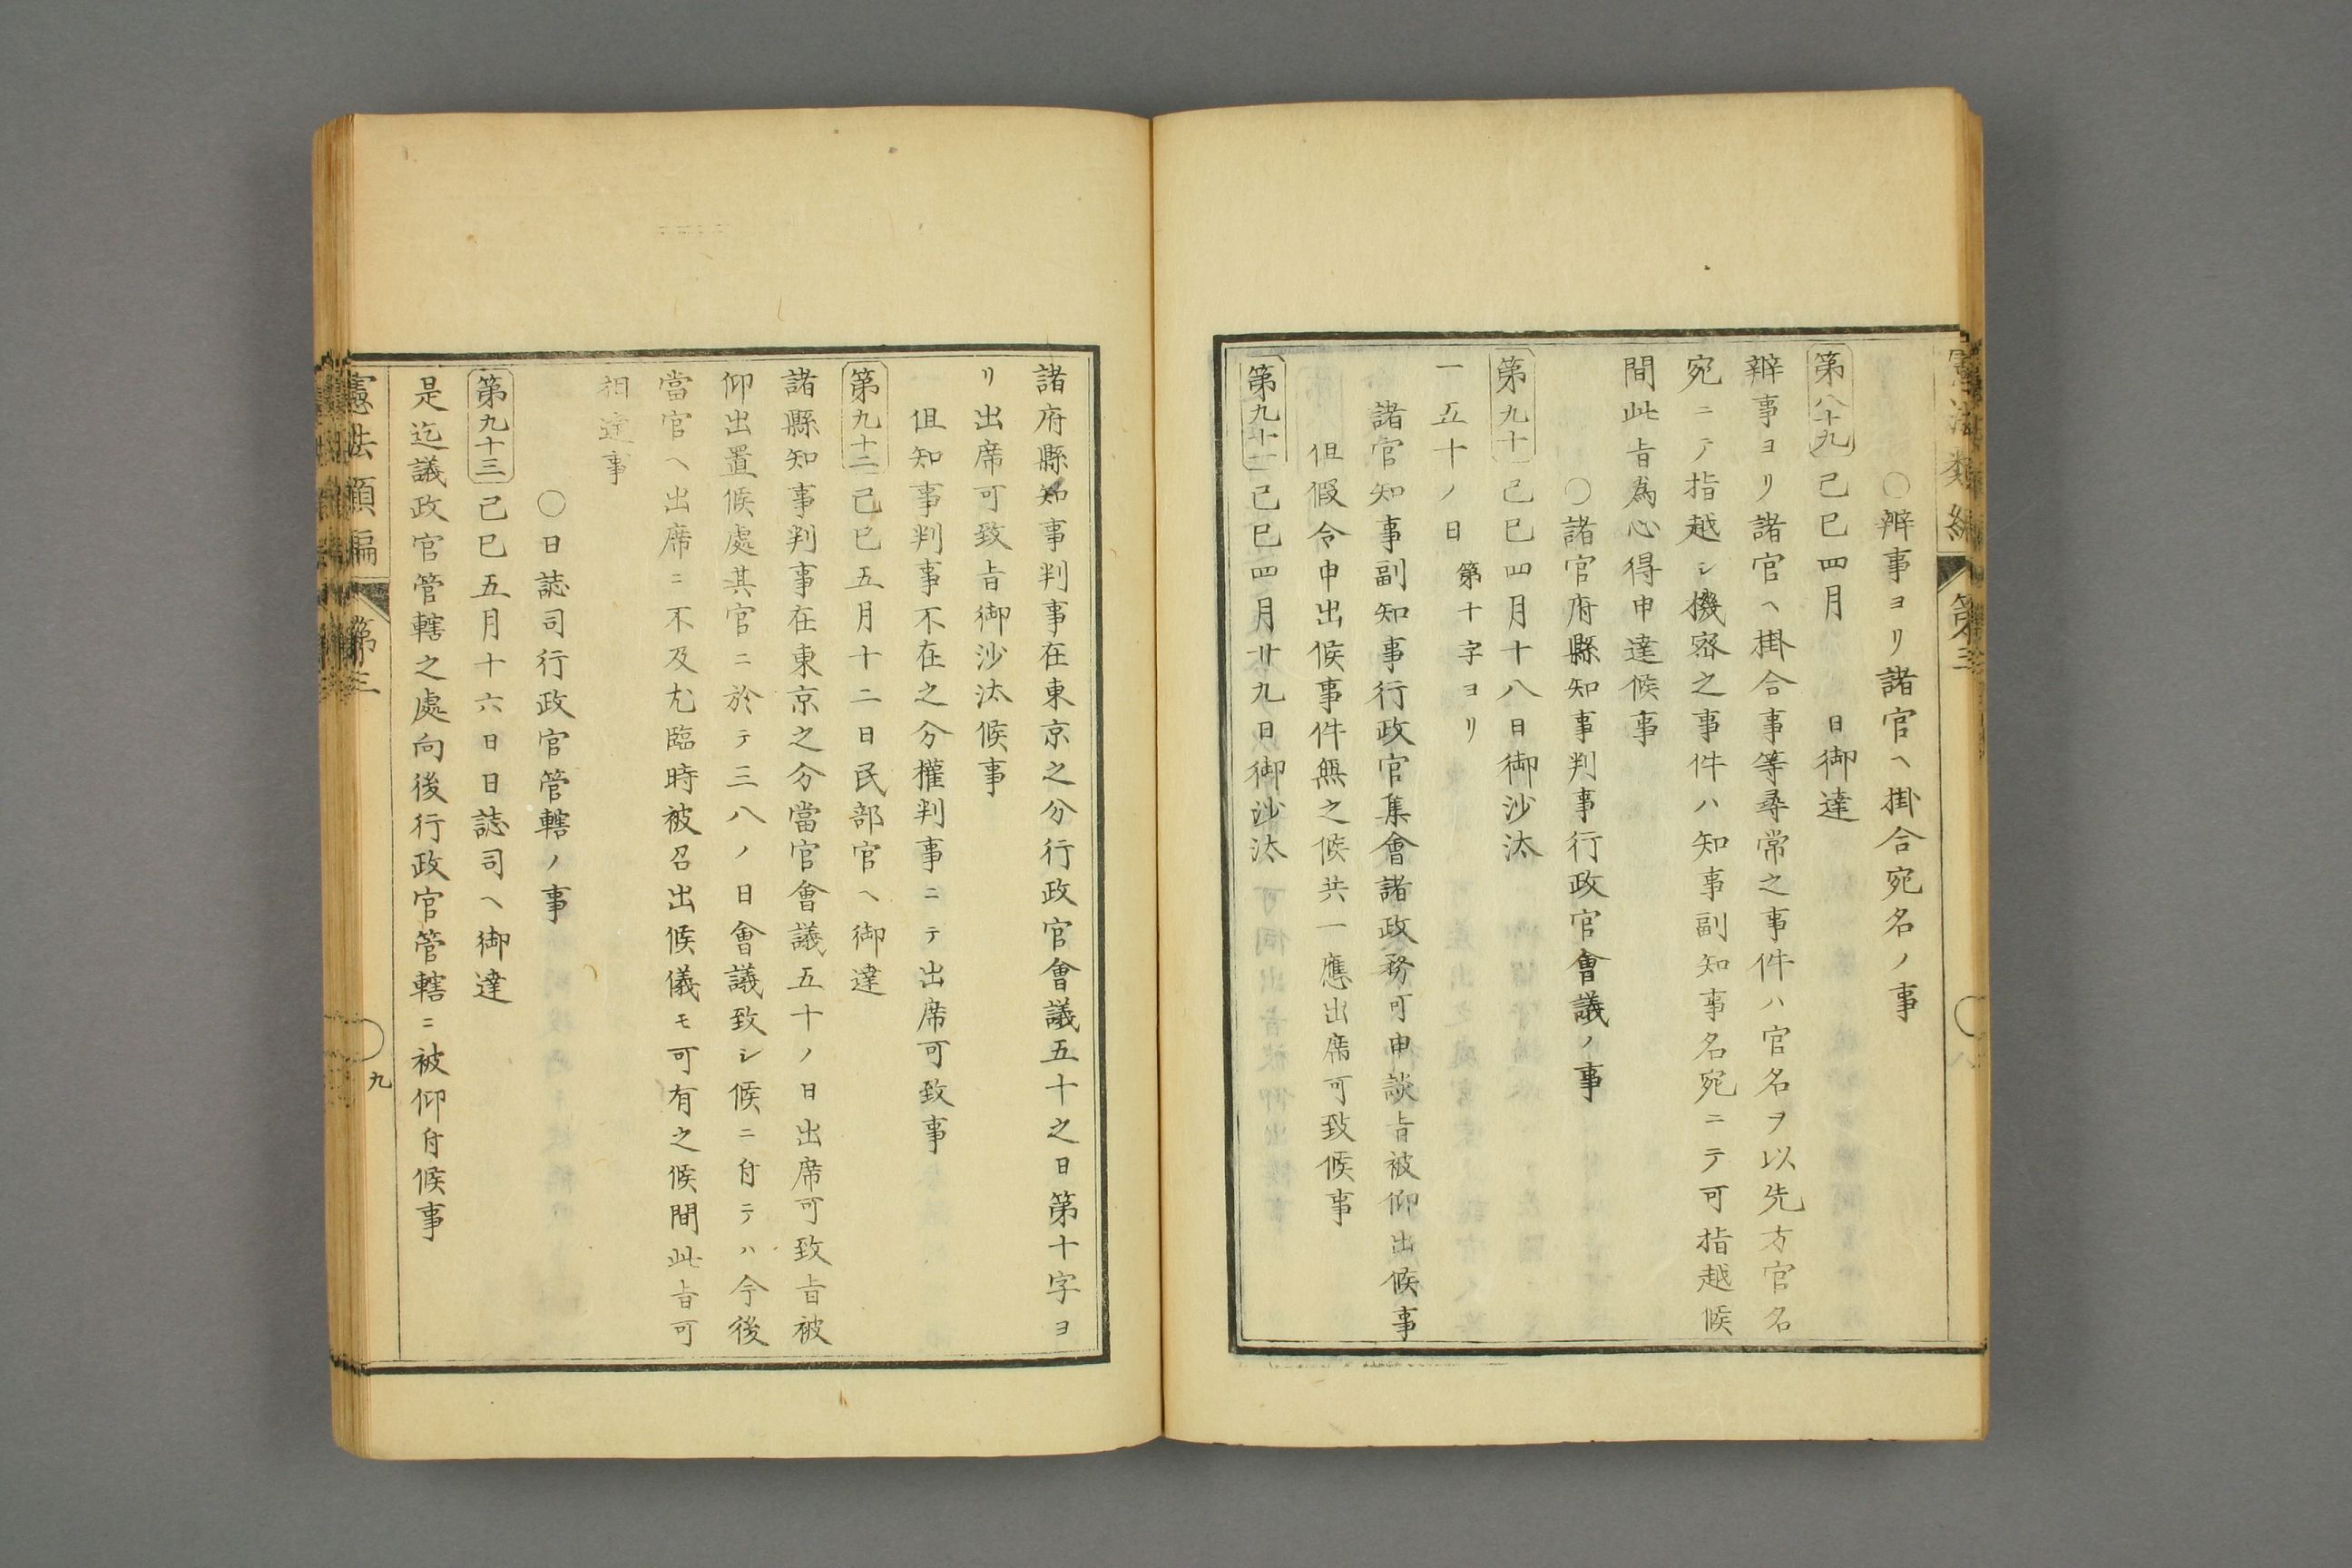 憲法類編
第三
八
○辨事ヨリ諸官ヘ掛合宛名ノ事
第八十九 己巳四月 日御達
辨事ヨリ諸官ヘ掛合事等尋常之事件ハ官名ヲ以先方官名
宛ニテ指越シ機密之事件ハ知事副知事名宛ニテ可指越候
間此旨為心得申達候事
○諸官府縣知事判事行政官會議ノ事
第九十 己巳四月十八日御沙汰
一五十ノ日 第十字ヨリ
諸官知事副知事行政官集會諸政務可申談旨被仰出候事
但假令申出候事件無之候共一應出席可致候事
第九十一 己巳四月廿九日御沙汰
諸府縣知事判事在東京之分行政官會議五十之日第十字ヨ
リ出席可致旨御沙汰候事
但知事判事不在之分權判事ニテ出席可致事
第九十二 己巳五月十二日民部官ヘ御達
諸縣知事判事在東京之分當官會議五十ノ日出席可致旨被
仰出置候處其官ニ於テ三八ノ日會議致シ候ニ付テハ今後
當官ヘ出席ニ不及尤臨時被召出候儀モ可有之候間此旨可
相達事
○日誌司行政官管轄ノ事
第九十三 己巳五月十六日日誌司ヘ御達
是迄議政官管轄之處向後行政官管轄ニ被仰付候事
憲法類編
第三
九